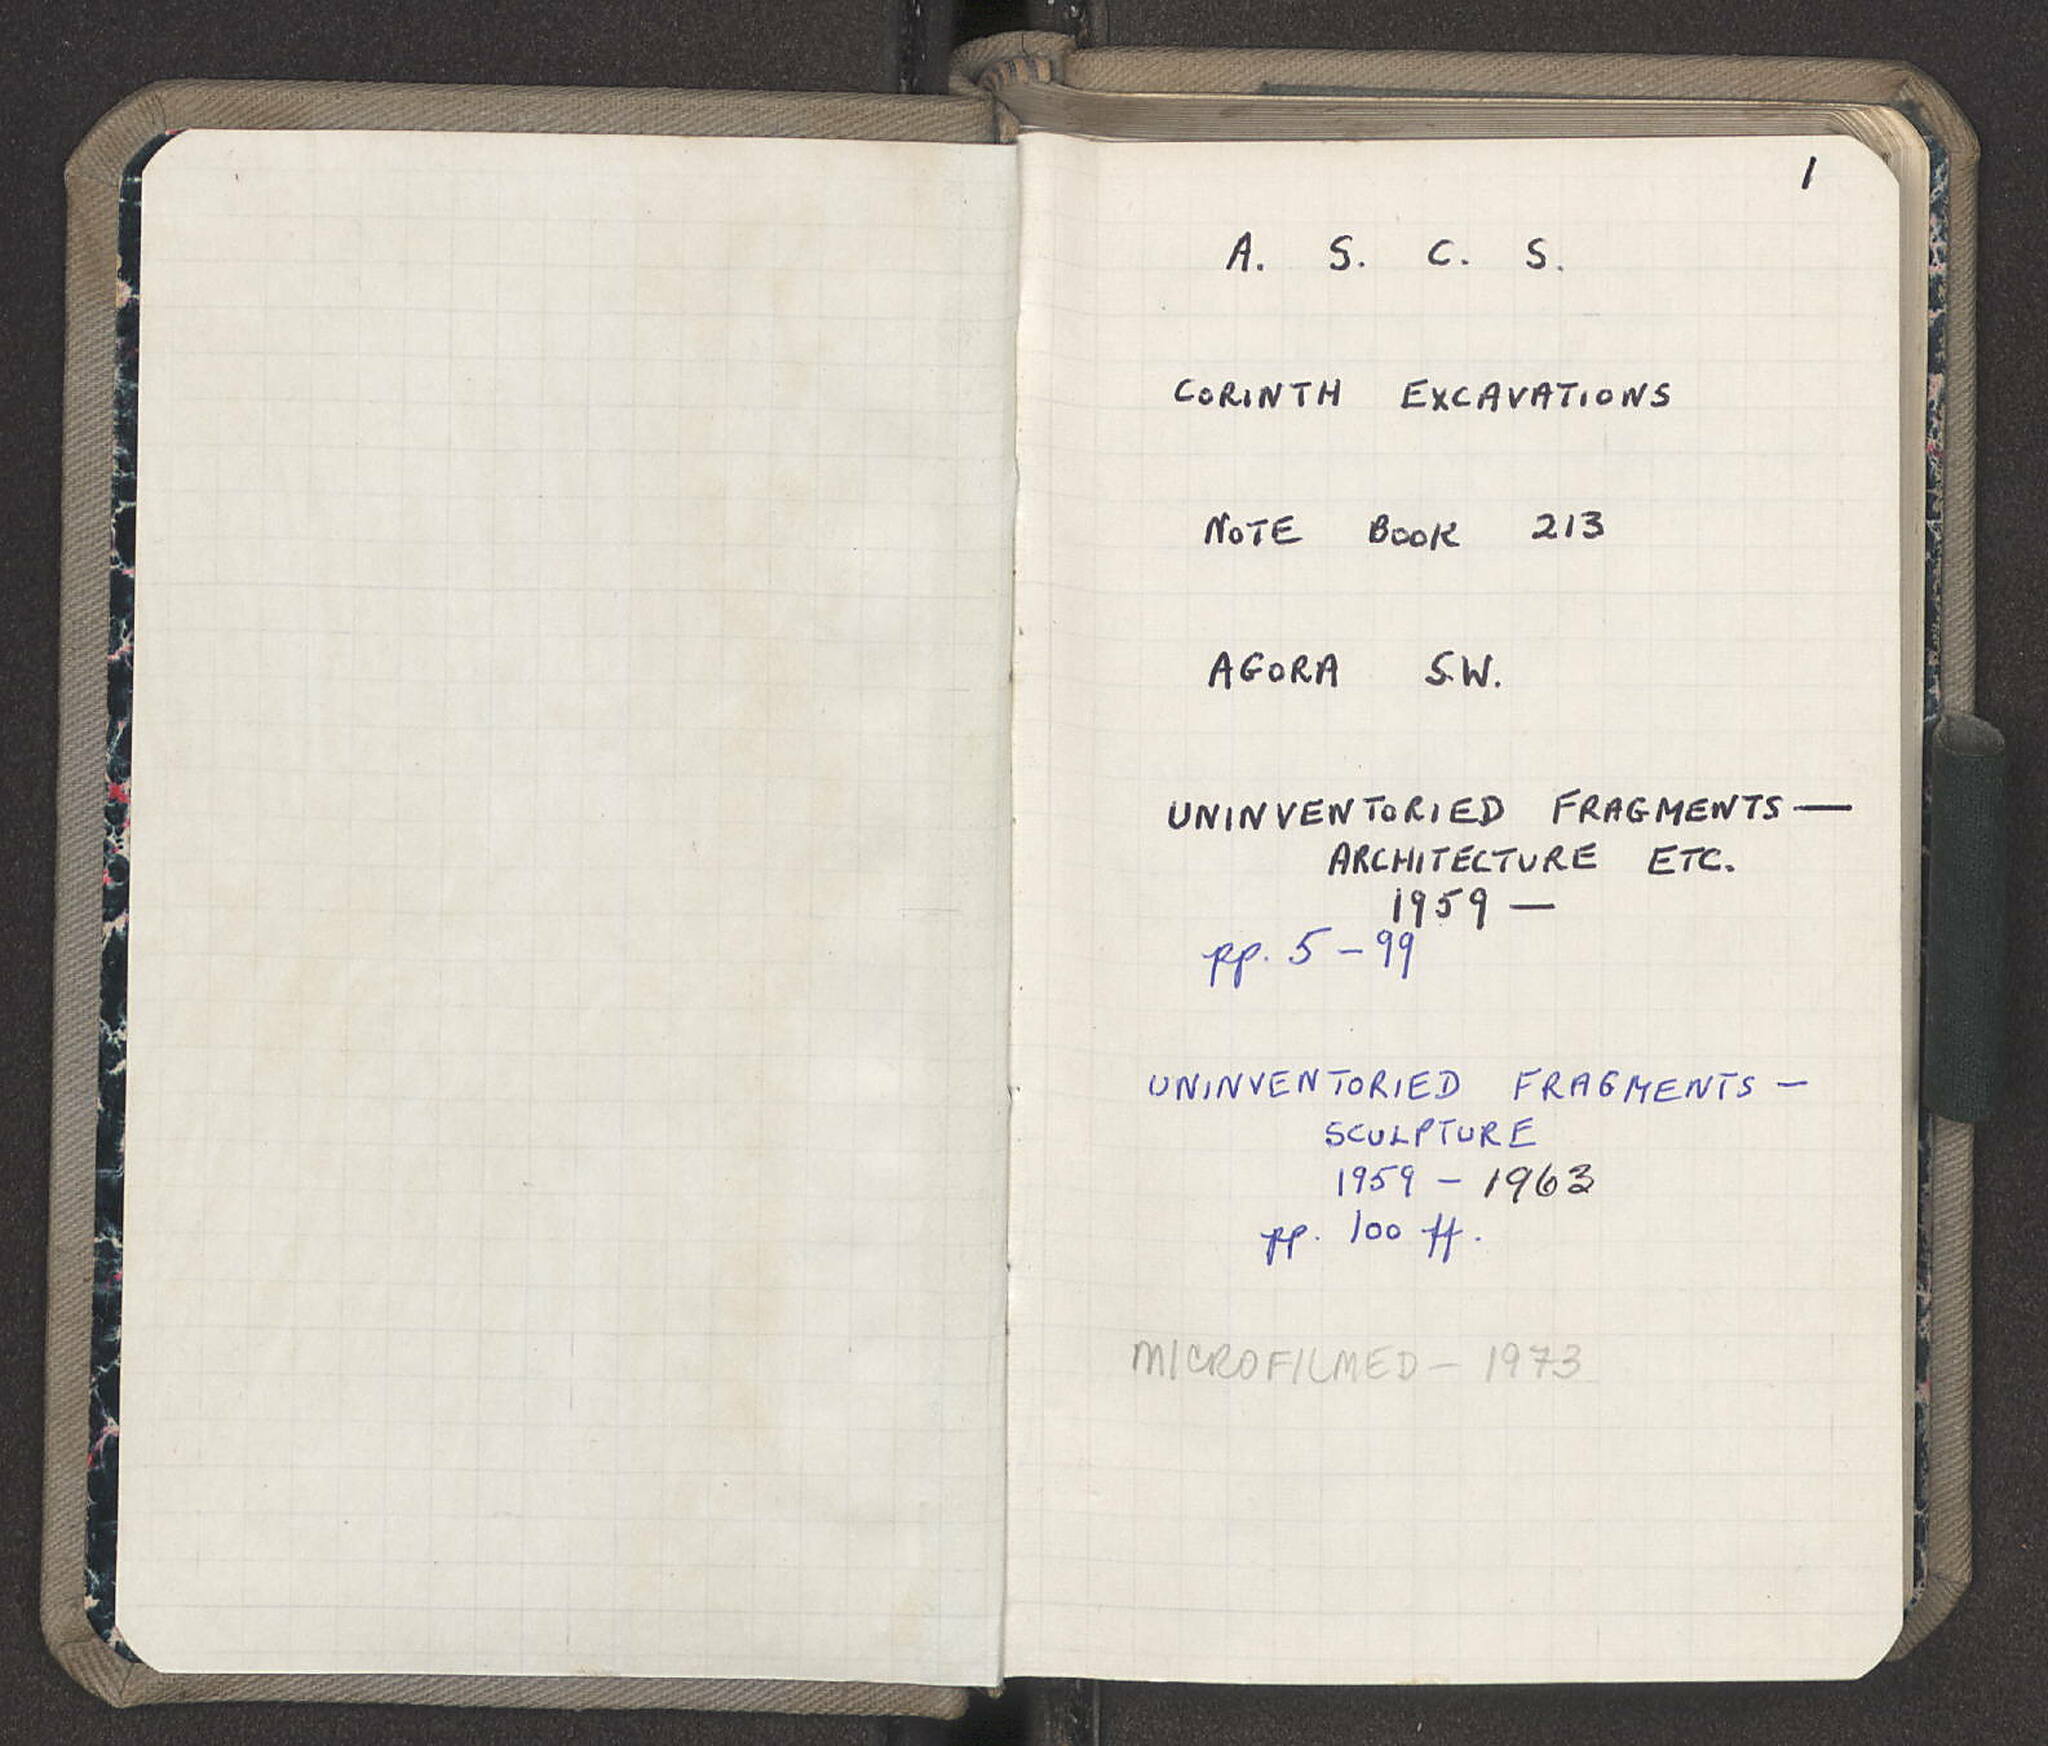 1
A. S. C. S.
CORINTH EXCAVATIONS
NOTE BOOK 213
AGORA S.W.
UNINVENTORIED FRAGMENTS —
ARCHITECTURE ETC.
1959 —
pp. 5 – 99
UNINVENTORIED FRAGMENTS –
SCULPTURE
1959 – 1963
pp. 100 ff.
MICROFILMED – 1973